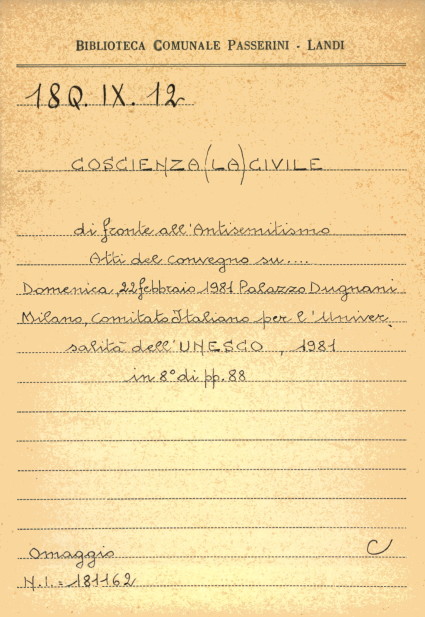 BIBLIOTECA COMUNALE PASSERINI - LANDI
18Q. IX. 12
COSCIENZA (LA) CIVILE
di fronte all'Antisemitismo
Atti del convegno su....
Domenica, 22 febbraio 1981 Palazzo Dugnani
Milano, Comitato Italiano per l'Univer
salità dell'UNESCO, 1981
in 8° di pp. 88
Omaggio C
N.I. = 181162